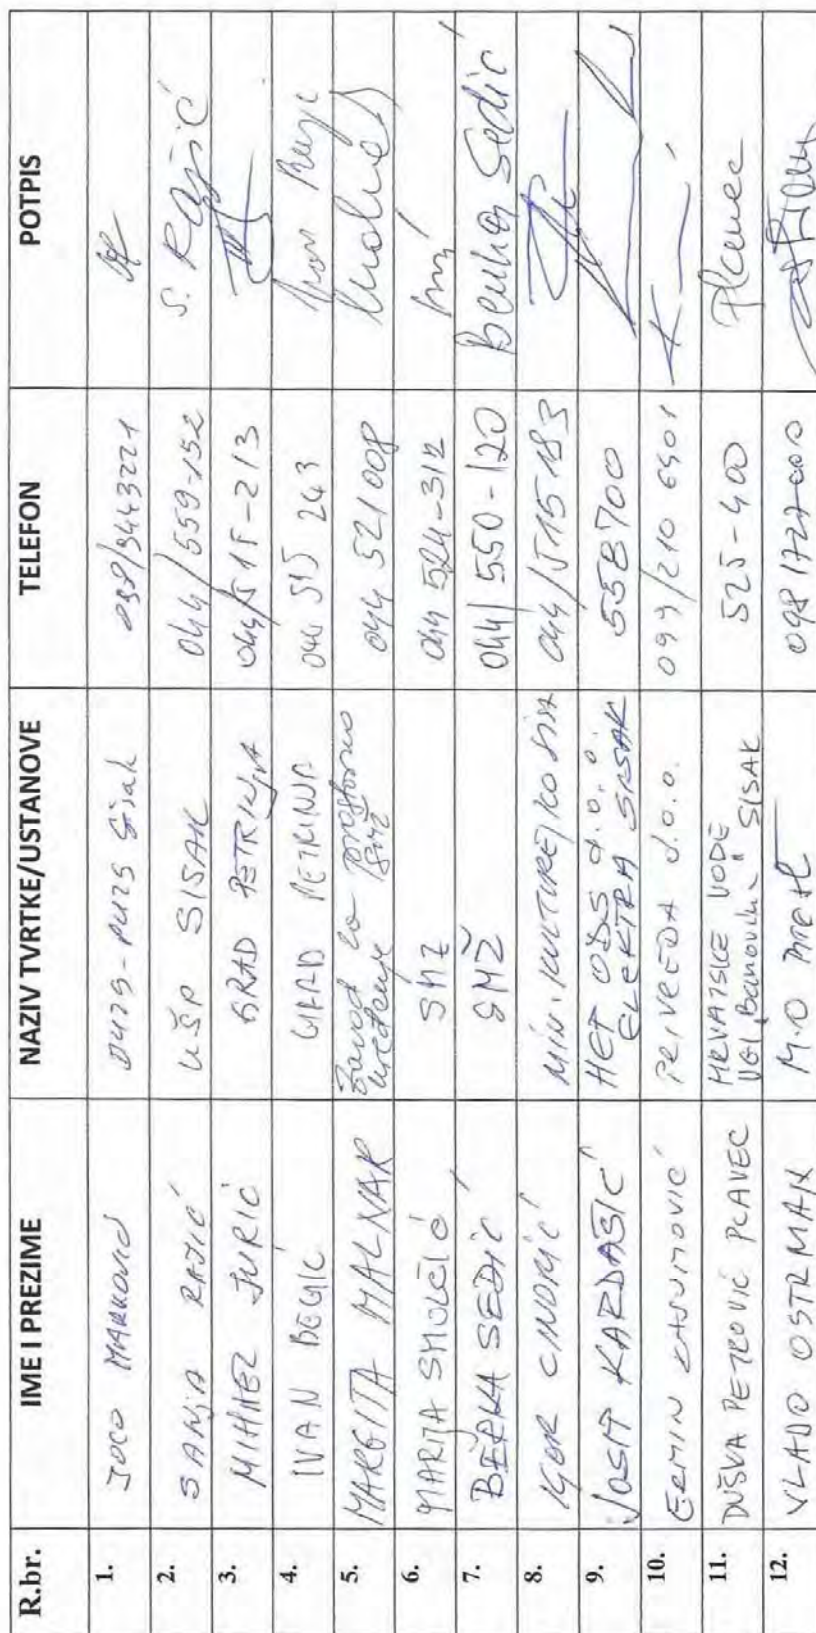 R.br. IME I PREZIME NAZIV TVRTKE/USTANOVE TELEFON POTPIS
1. JOCO MARKOVIĆ DUZS-PUZS Sisak
2. SANJA RAJIĆ UŠP SISAK 044/559-152 S. Rajić
3. MIHAEL JURIĆ GRAD PETRINJA 044/515-213
4. IVAN BEGIĆ GRAD PETRINJA 044 515 243 Ivan Begić
5. MARGITA MALNAR Zavod za prostorno
uređenje SMŽ 044 521 008
6. MARIJA SMOLČIĆ SMŽ 044 524-312
7. BERKA SEDIĆ SMŽ 044/550-120 Berka Sedić
8. IGOR CINDRIĆ MIN. KULTURE, KO SISAK 044/515 183
9. JOSIP KARDAŠIĆ HEP ODS d.o.o.
ELEKTRA SISAK 558700
10. ERMIN PRIVREDA d.o.o. 099/210 6501
11. DUŠKA PETROVIĆ PLAVEC HRVATSKE VODE
VGI "Banovina" SISAK 525-400 Plavec
12. VLADO OSTRMAN M.O